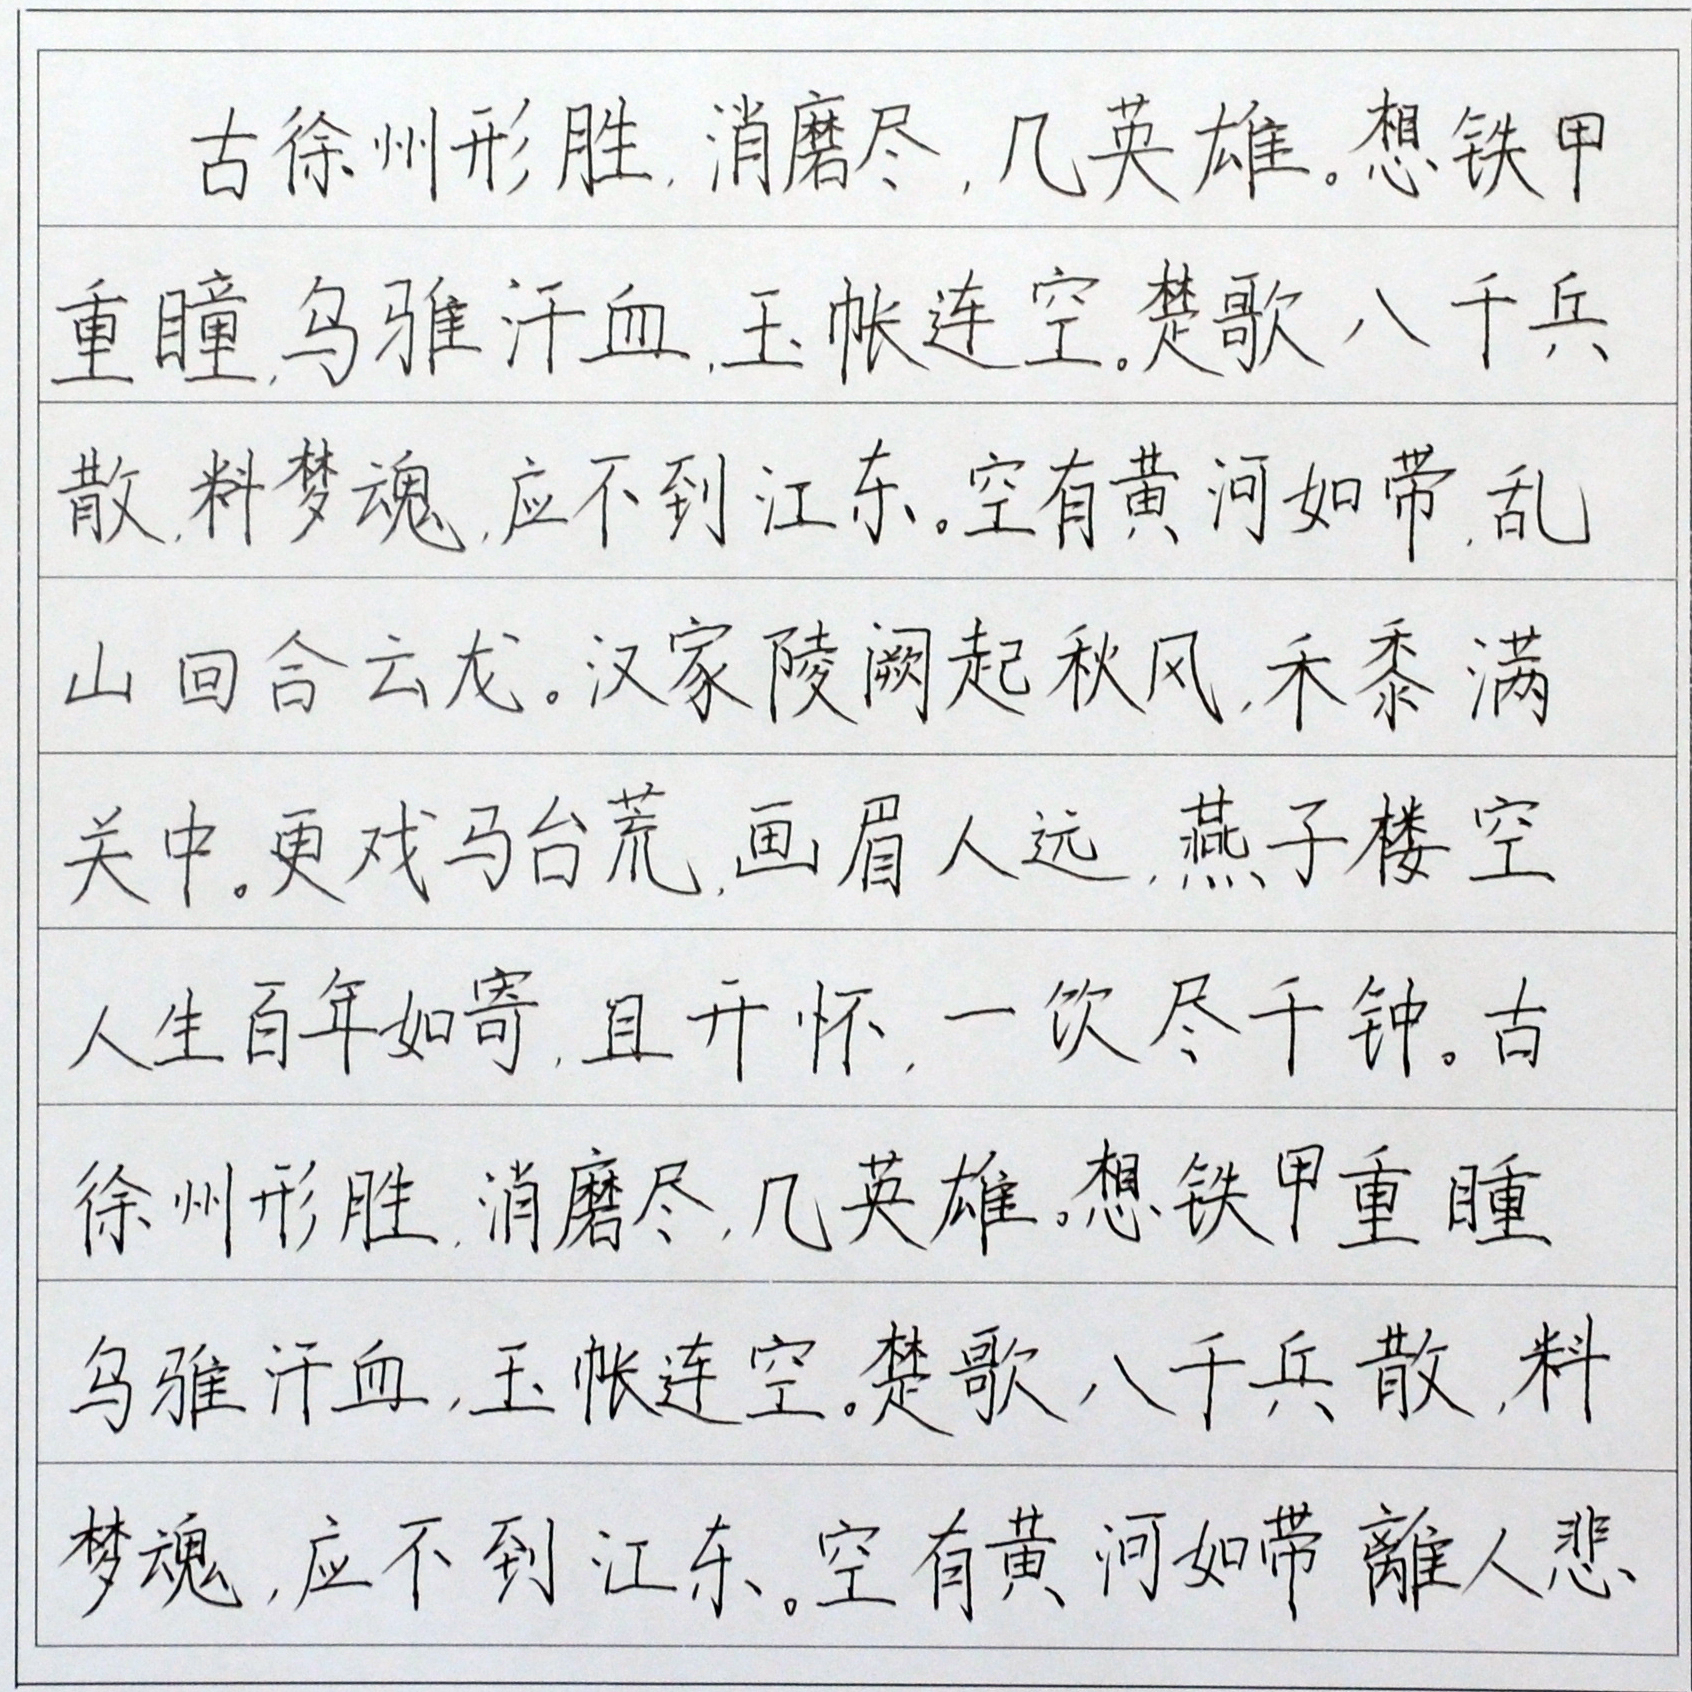 古徐州形胜,消磨尽,几英雄。想铁甲
重瞳,乌骓汗血,玉帐连空。楚歌八千兵
散,料梦魂,应不到江东。空有黄河如带,乱
山回合云龙。汉家陵阙起秋风,禾黍满
关中。更戏马台荒,画眉人远,燕子楼空
人生百年如寄,且开怀,一饮尽千钟。古
徐州形胜,消磨尽,几英雄。想铁甲重瞳
乌骓汗血,玉帐连空。楚歌八千兵散,料
梦魂,应不到江东。空有黄河如带離人悲